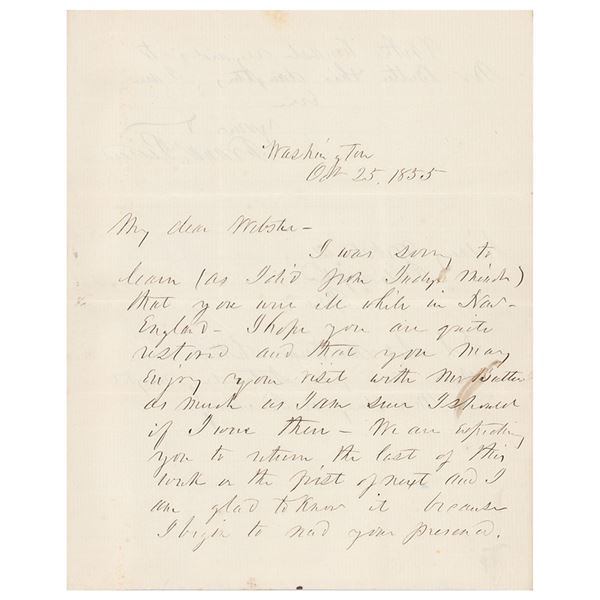 Washington
Oct 25. 1855
My dear Webster -
I was sorry to
learn (as I did from Judge Minot)
that you were ill while in New-
England - I hope you are quite
restored and that you may
enjoy your visit with Mr Butler
as much as I am sure I should
if I were there - We are expecting
you to return the last of this
week or the first of next and I
am glad to know it because
I begin to need your presence.